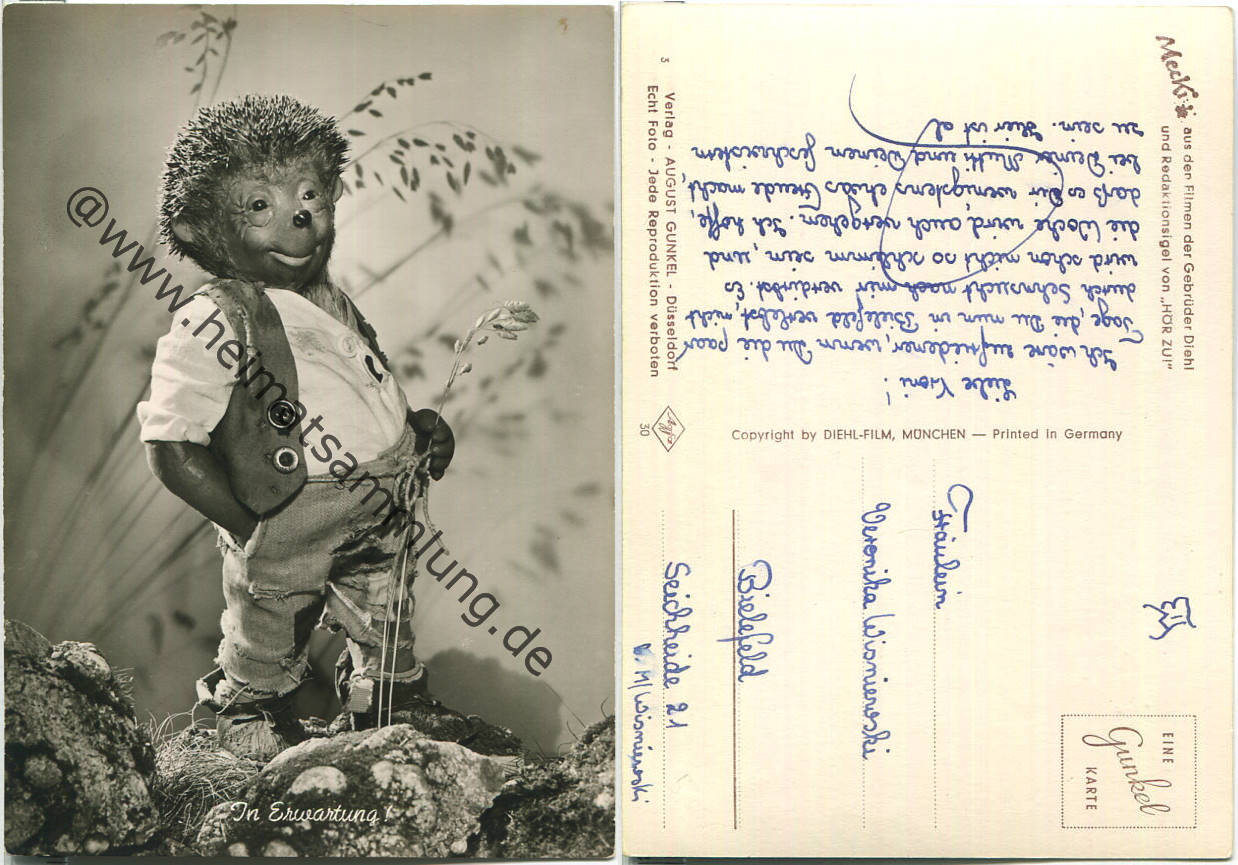 In Erwartung!
@www.heimatsammlung.de
Mecki
aus den Filmen der Gebrüder Diehl
und Redaktionsigel von „HÖR ZU!"
Liebe Vroni!
Ich wäre zufriedener, wenn Du die paar
Tage, die Du nun in Bielefeld verlebst, nicht
durch Sehnsucht nach mir verdirbst. Es
wird schon nicht so schlimm sein, und
die Woche wird auch vergehen. Ich hoffe,
daß es Dir wenigstens etwas Freude macht,
bei Deiner Mutti und Deinen Geschwistern
zu sein. Hier ist al
Verlag - AUGUST GUNKEL - Düsseldorf
Echt Foto - Jede Reproduktion verboten
3
30
Agfa
Copyright by DIEHL-FILM, MÜNCHEN — Printed in Germany
EINE
Gunkel
KARTE
Fräulein
Veronika Wisniewski
Bielefeld
Seichheide 21
Wisniewski